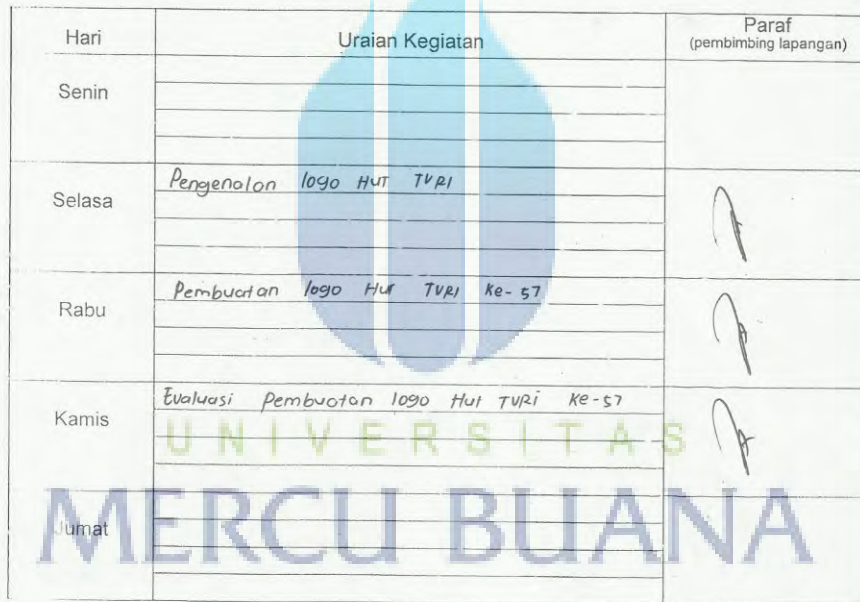 Hari Uraian Kegiatan Paraf
(pembimbing lapangan)
Senin
Pengenalan logo HUT TVRI
Selasa
Pembuatan logo Hut TVRI ke-57
Rabu
Evaluasi Pembuatan logo Hut TVRI ke-57
Kamis
UNIVERSITAS
MERCU BUANA
Jumat